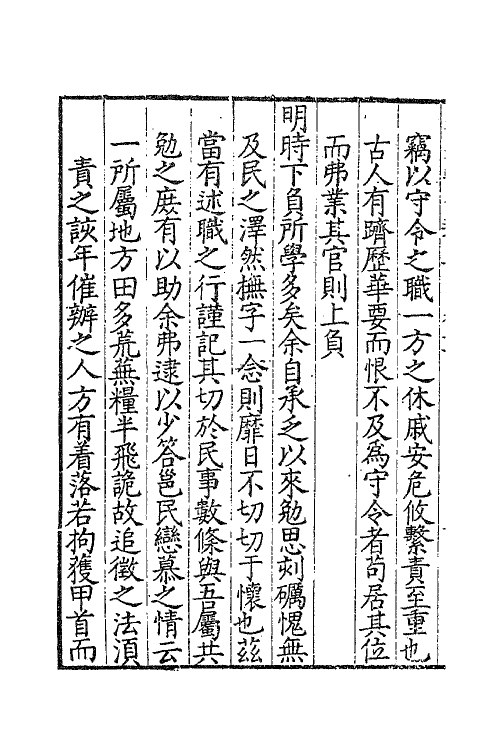 竊以守令之職一方之休戚安危攸繫責至重也
古人有躋歷華要而恨不及為守令者苟居其位
而弗業其官則上負
明時下負所學多矣余自承乏以來勉思刻礪愧無
及民之澤然撫字一念則靡日不切切于懷也茲
當有述職之行謹記其切於民事數條與吾屬共
勉之庶有以助余弗逮以少答邕民戀慕之情云
一所屬地方田多荒蕪糧半飛詭故追徵之法須
責之該年催辦之人方有着落若拘獲甲首而